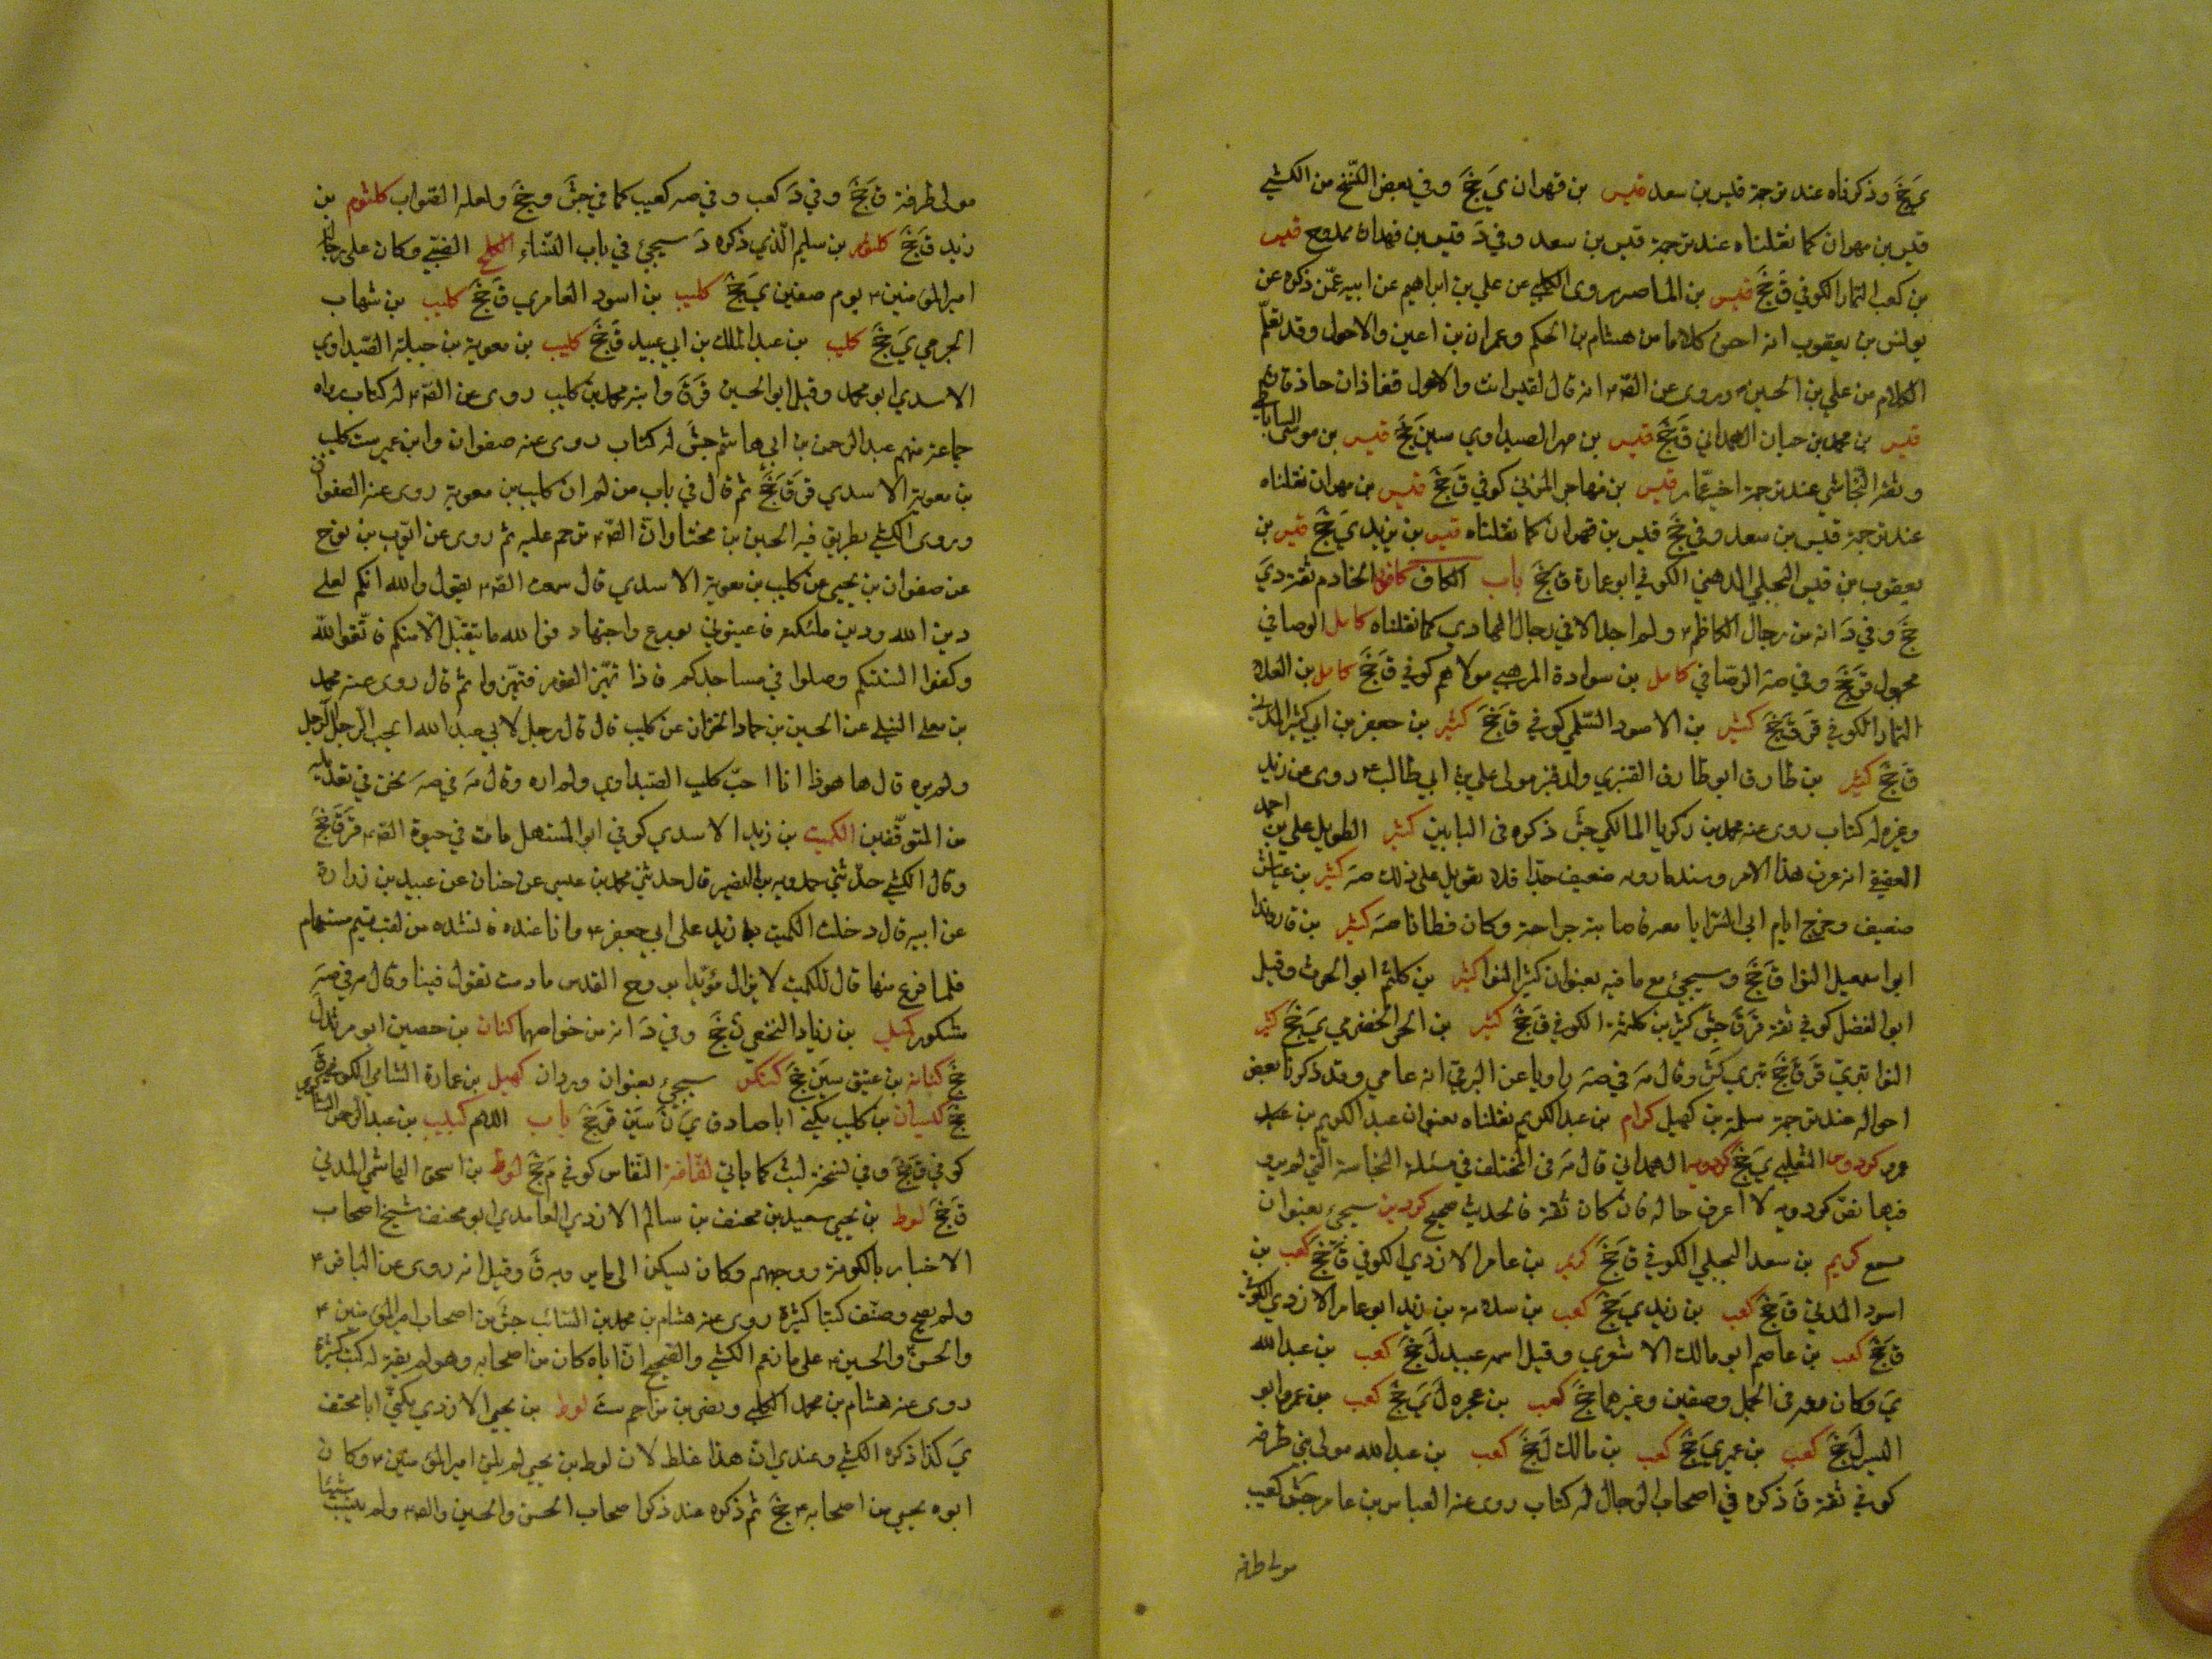 يَ جخَ وذكرناه عند ترجمة قيس بن سعد قيس بن قهران يَ جخَ وفي بعض النسخ من الكشي
قيس بن مهران كما نقلناه عند ترجمة قيس بن سعد وفي دَ قيس بن فهدان ممدوح قيس
بن كعب التمار الكوفي قَ جخَ قيس بن الماصر روى الكليني عن علي بن ابراهيم عن ابيه عمّن ذكره عن
يونس بن يعقوب انه احسن كلاما من هشام بن الحكم وعمران بن اعين والاحول وقد تعلّم
الكلام من علي بن الحسين وروى عن الصّ انه قال لقيس انت والاحول قفازان حاذقان
قيس بن محمد بن حيان الهمداني قَ جخَ قيس بن مهر الصيداوي سين جخَ قيس بن موسى الساباطي
وثقه النجاشي عند ترجمة اخيه عمّار قيس بن مهاجر المزني كوفي قَ جخَ قيس بن مهران نقلناه
عند ترجمة قيس بن سعد وفي جخَ قيس بن قهران كما نقلناه قيس بن يزيد يَ جخَ قيس بن
يعقوب بن قيس البجلي الدهني الكوفي ابو عمارة قَ جخَ باب الكاف كافور الخادم ثقة ديَ
جخَ وفي دَ انه من رجال الكاظم ولم اجد الا في رجال الهادي كما نقلناه كامل الوصافي
مجهول قرَ جخَ وفي صه الرصافي كامل بن سوادة المرهبي مولاهم كوفي قَ جخَ كامل بن العلاء
التمار الكوفي قرَ قَ جخَ كثير بن الاسود السّلمي كوفي قَ جخَ كثير بن جعفر بن ابي كثير المدني
قَ جخَ كثير بن طارق ابو طارق القنبري ولد قنبر مولى علي بن ابي طالب روى عن زيد
وغيره له كتاب روى عنه محمد بن زكريا المالكي جشَ ذكره في البابين كثير الطويل علي بن احمد
العقيقي انه عرف هذا الامر وسند ما رويه ضعيف جدّا فلا تعويل على ذلك صه كثير بن عياش
ضعيف وخرج ايام ابي السّرايا معه فاصابته جراحة وكان قطانا صه كثير بن قاروندا
ابو اسمعيل النوا قَ جخَ وسيجيء مع ما فيه بعنوان كثير النوا كثير بن كلثم ابو الحرث وقيل
ابو الفضل كوفي ثقة قرَ قَ جشَ كثير بن كلثمة الكوفي قَ جخَ كثير بن الحر الحضرمي يَ جخَ كثير
النوا بتريّ قرَ قَ جخَ بتري كش وقال مَه في صه راويا عن البرقي انه عامي وقد ذكرنا بعض
احواله عند ترجمة سلمة بن كهيل كرام بن عبد الكريم نقلناه بعنوان عبد الكريم بن
عمرو كردوس التغلبي يَ جخَ كردويه الهمداني قال مَه في المختلف في مسئلة النجاسة التي لم يرو
فيها نصّ كردويه لا اعرف حاله فان كان ثقة فالحديث صحيح كردين سيجيء بعنوان
مسمع كريم بن سعد البجلي الكوفي قَ جخَ كريم بن عامر الازدي الكوفي قَ جخَ كعب بن
اسود المدني قَ جخَ كعب بن زيد يَ جخَ كعب بن سلامة بن زيد ابو عامر الازدي الكوفي
قَ جخَ كعب بن عاصم ابو مالك الاشعري وقيل اسمه عبيد لَ جخَ كعب بن عبد الله
يَ وكان معه في الجمل وصفين وغيرهما جخَ كعب بن عجره لَ يَ جخَ كعب بن عمرو ابو
اليسر لَ جخَ كعب بن عمير يَ جخَ كعب بن مالك لَ جخَ كعب بن عبد الله مولى بني طرفة
كوفي ثقة قَ ذكره في اصحاب الرجال له كتاب روى عنه العباس بن عامر جشَ كعيب
مولى طرفة
مولى طرفة قَ جخَ وفي دَ كعب وفي صه كعيب كما في جشَ وجخَ ولعله الصّواب كلثوم بن
زيد قَ جخَ كلثوم بن سليم الّذي ذكره دَ سيجيء في باب النّساء الضبّي وكان على رجاله
امير المؤمنين يوم صفين يَ جخَ كليب بن اسود العامري قَ جخَ كليب بن شهاب
الجرمي يَ جخَ كليب بن عبد الملك بن ابي عبيد قَ جخَ كليب بن معوية بن جبلة الصّيداوي
الاسدي ابو محمد وقيل ابو الحسين قرَ قَ وابنه محمد بن كليب روى عن الصّ له كتاب رواه
جماعة منهم عبد الرحمن بن ابي هاشم جشَ له كتاب روى عنه صفوان وابن عمير ست كليب
بن معوية الاسدي قرَ قَ جخَ ثم قال في باب من لم ان كليب بن معوية روى عنه الصفوان
وروى الكشي بطريق فيه الحسين بن مختار انّ الصّ ترحم عليه ثم روى عن ايّوب بن نوح
عن صفوان بن يحيى عن كليب بن معوية الاسدي قال سمعت الصّ يقول والله انكم لعلى
دين الله ودين ملئكته فاعينوني بورع واجتهاد فوالله ما يتقبّل الا منكم فاتّقوا الله
وكفوا السنتكم وصلوا في مساجدكم فاذا تميّز القوم فتميّزوا ثم قال روى عنه محمد
بن معلى النيلي عن الحسين بن حماد الخزان عن كليب قال قال رجل لابي عبد الله ايحب الرجل الرجل
ولم يره قال ها هوذا انا احبّ كليب الصّيداوي ولم اره وقال مَه في صَه نحن في تعديله
من المتوقّفين الكميت بن زيد الاسدي كوفي ابو المستهل مات في حيوة الصّ قرَ قَ جخَ
وقال الكشي حدّثني حمدويه بن النصير قال حدثني محمد بن عيسى عن حنان عن عبيد بن زرارة
عن ابيه قال دخلت الكميت بن زيد على ابي جعفر وانا عنده فانشده من لقب متيم مستهام
فلما فرغ منها قال للكميت لا يزال مؤيّدا بروح القدس ما دمت تقول فينا وقال مَه في صَه
مشكور كميل بن زياد النخعي نَ جخَ وفي دَ انه من خواصهما كنان بن حصين ابو مرثد لَ
جخَ كنانة بن عتيق سين جخَ كنكر سيجيء بعنوان وردان كهيل بن عمارة الشامي الكوفي قَ
جخَ كيسان بن كليب يكنى ابا صادق يَ نَ سين قرَ جخَ باب اللام لبيب بن عبد الرحمن
كوفي قَ جخَ وفي نسخة ليث كما ياتي لقافة النقاس كوفي مَ جخَ لوط بن اسحق الهاشمي المدني
قَ جخَ لوط بن يحيى سعيد بن مخنف بن سالم الازدي الغامدي ابو مخنف شيخ اصحاب
الاخبار بالكوفة ووجههم وكان يسكن الى ما يرويه قَ وقيل انه روى عن الباقر
ولم يصح وصنّف كتبا كثيرة روى عنه هشام بن محمد بن السّائب جشَ من اصحاب امير المؤمنين
والحسن والحسين على ما زعم الكشي والصّحيح انّ اباه كان من اصحابه وهو لم يلقه له كتب كثيرة
روى عنه هشام بن محمد الكلبي ونصر بن مزاحم ست لوط بن يحيى الازدي يكنّى ابا مخنف
يَ كذا ذكره الكشي وعندي انّ هذا غلط لان لوط بن يحيى لم يلق امير المؤمنين وكان
ابوه يحيى من اصحابه جخَ ثم ذكره عند ذكر اصحاب الحسن والحسين والصّ ولم يثبت شيئا